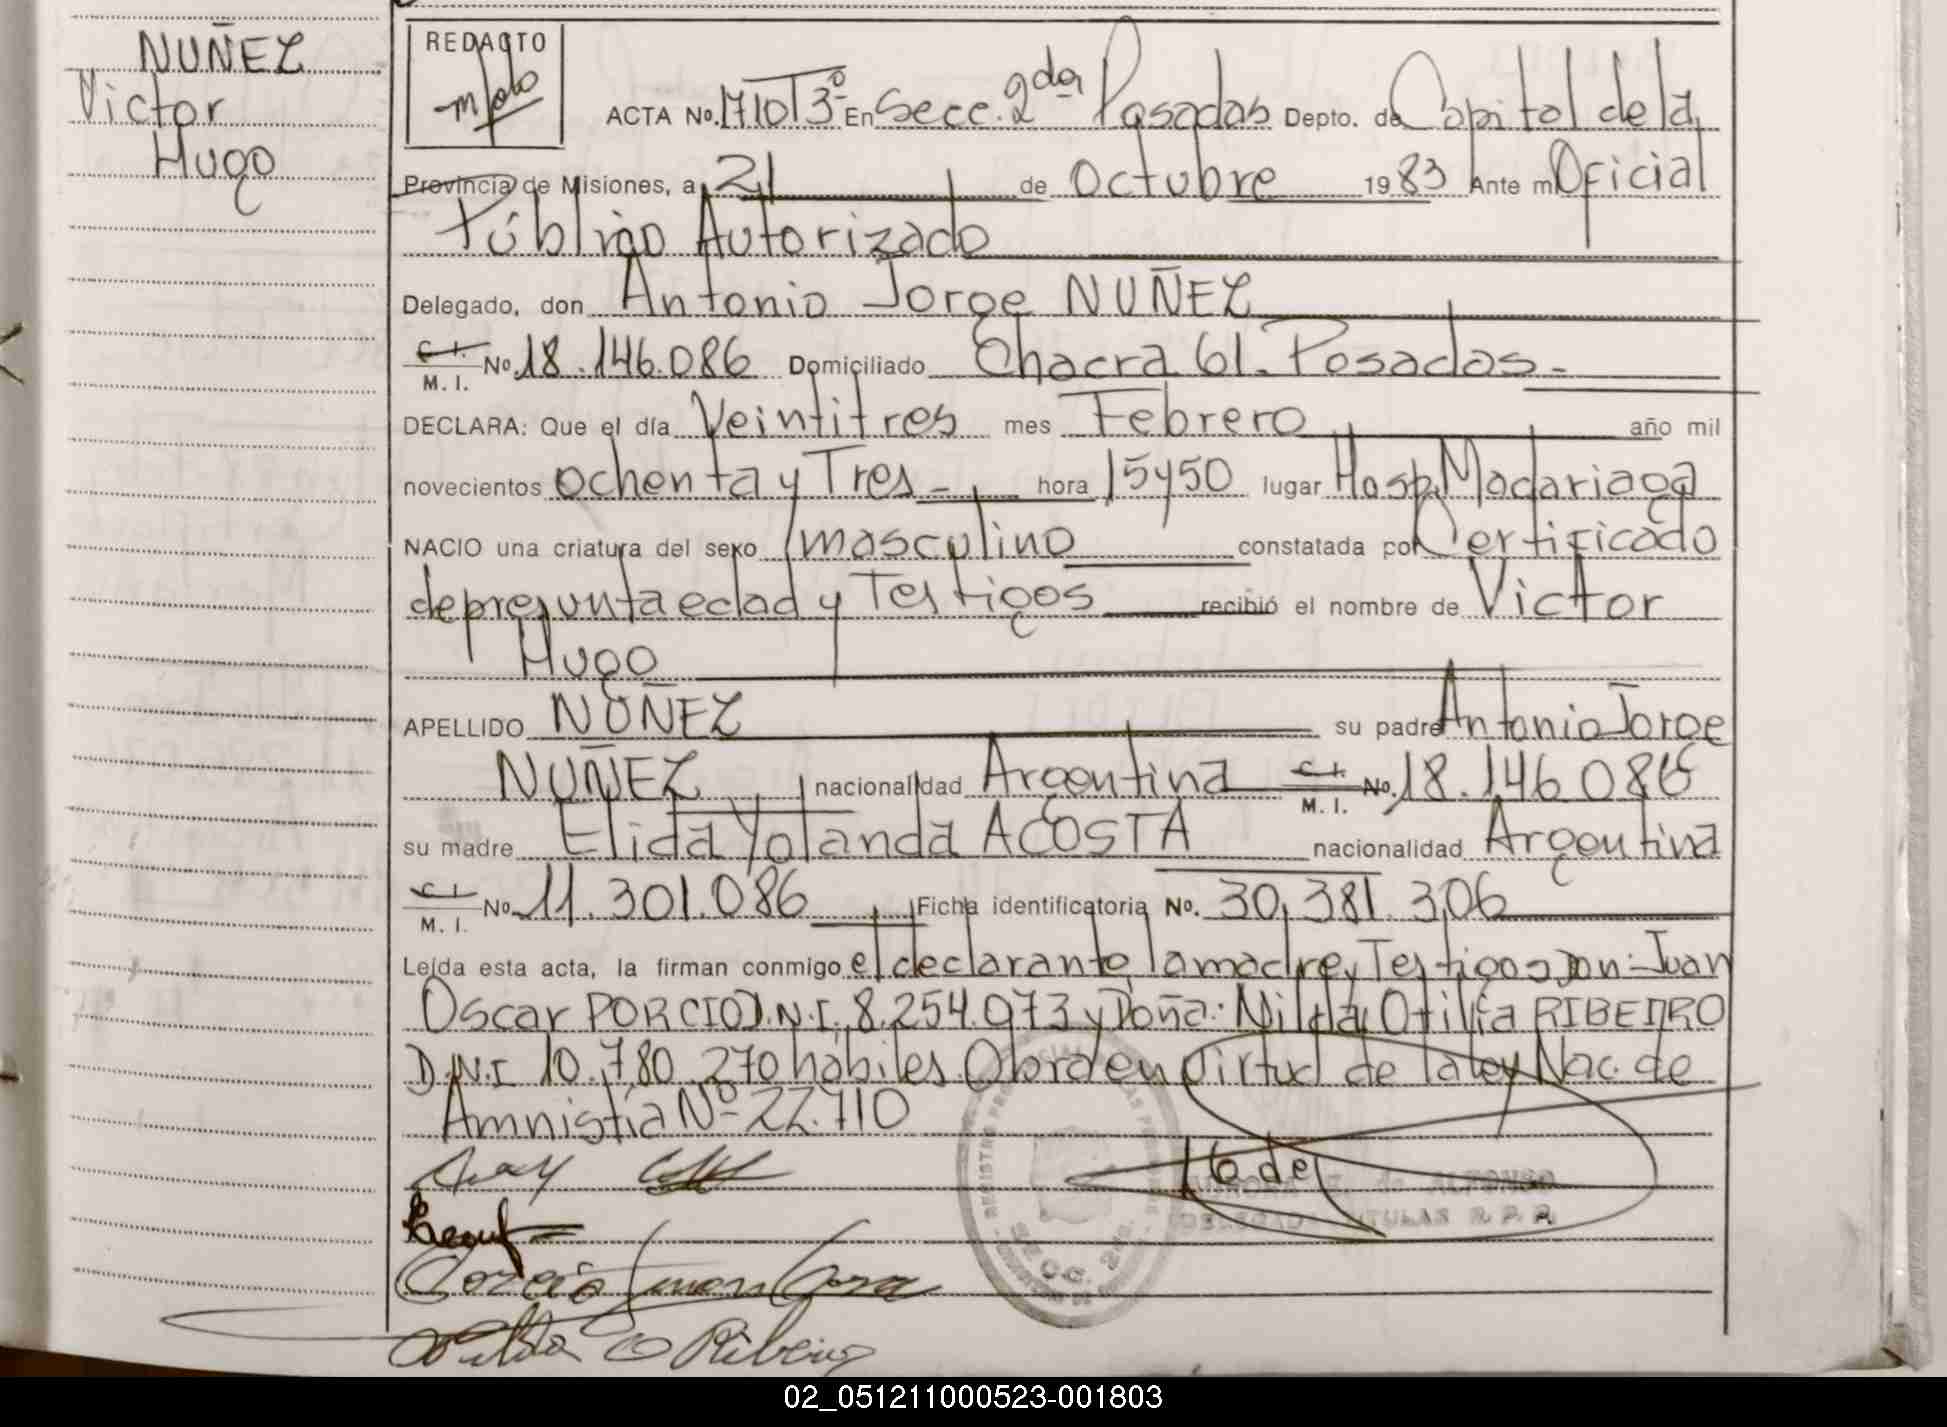 NUÑEZ
Victor
Hugo
REDACTO
ACTA No. En Secc. 2da Posadas Depto. de Capital de la
Provincia de Misiones, a 21 de Octubre 1983 Ante mi Oficial
Público Autorizado
Delegado, don Antonio Jorge NUÑEZ
C.I. M.I. No. 18.146.086 Domiciliado Chacra 61. Posadas.-
DECLARA: Que el día Veintitres mes Febrero año mil
novecientos ochenta y Tres - hora 15y50 lugar Hosp. Madariaga
NACIO una criatura del sexo masculino constatada por Certificado
de presunta edad y Testigos recibió el nombre de Victor
Hugo
APELLIDO NUÑEZ su padre Antonio Jorge
NUÑEZ nacionalidad Argentina C.I. M.I. No. 18.146.086
su madre Elida Yolanda ACOSTA nacionalidad Argentina
C.I. M.I. No. 11.301.086 Ficha identificatoria No. 30.381.306
Leída esta acta, la firman conmigo el declarante, la madre y Testigos Don: Juan
Oscar PORCIO D.N.I. 8.254.073 y Doña: Nilda Otilia RIBEIRO
D.N.I 10.780.270 hábiles. Obra en Virtud de la ley Nac. de
Amnistia Nº 22.710
SECC. 2da.
DELEGADA TITULAR R.P.P.
02_051211000523-001803